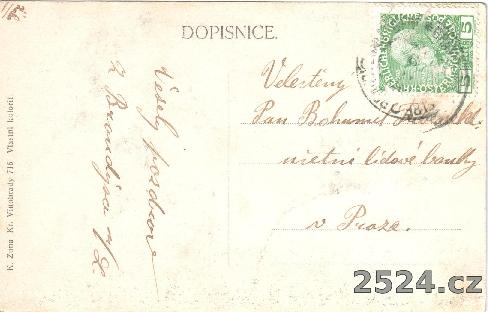 DOPISNICE.
Veselý pozdrav
z Brandýsa n/L.
Velectěný
Pan Bohumil
účetní lidové banky
v Praze.
K. Zuna Kr. Vinohrady 716 Vlastní kolorit
5
5
2524.cz